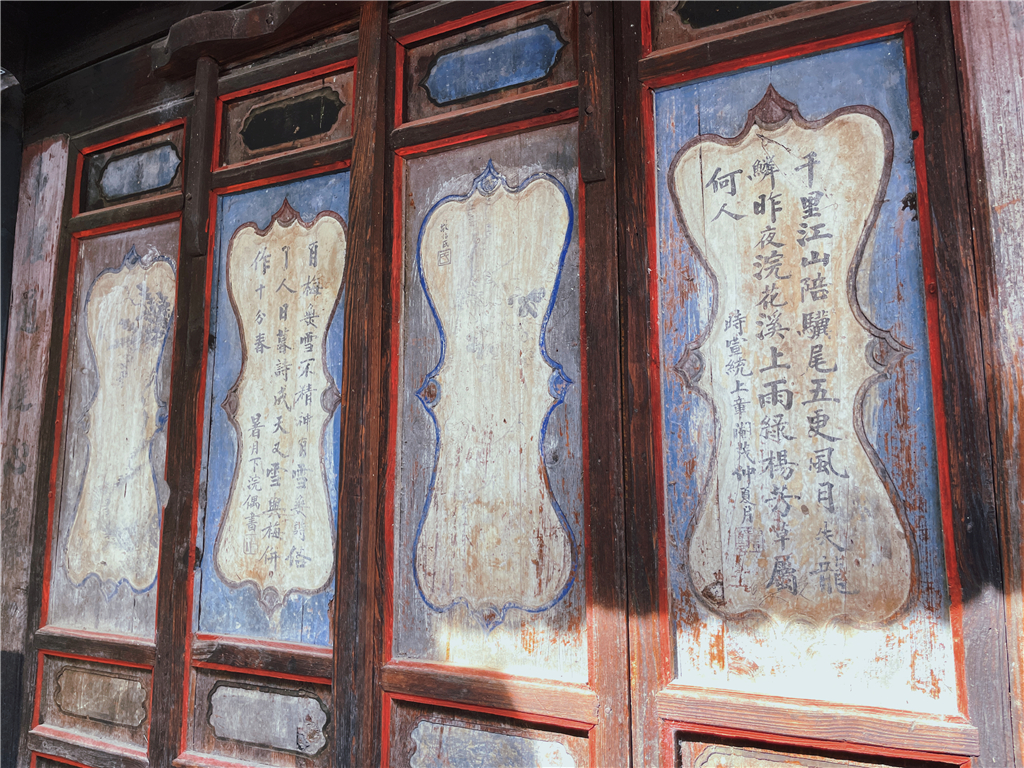 千里江山陪驥尾五更風月失龍
鱗昨夜浣花溪上雨綠楊芳草屬
何人
時宣統上章閹茂仲夏月
有梅無雪不精神有雪無詩俗
了人日暮詩成天又雪與梅併
作十分春
暑月下浣偶書